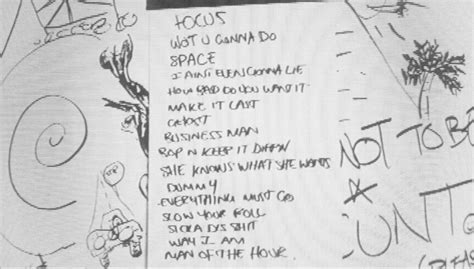 FOCUS
WOT U GONNA DO
SPACE
I AIN'T EVEN GONNA LIE
HOW BAD DO YOU WANT IT
MAKE IT LAST
GHOST
BUSINESS MAN
BOP N KEEP IT DIPPIN
SHE KNOWS WHAT SHE WANTS
DUMMY
EVERYTHING MUST GO
SLOW YOUR ROLL
SICKA DIS SHIT
WAY I AM
MAN OF THE HOUR
NOT TO BE